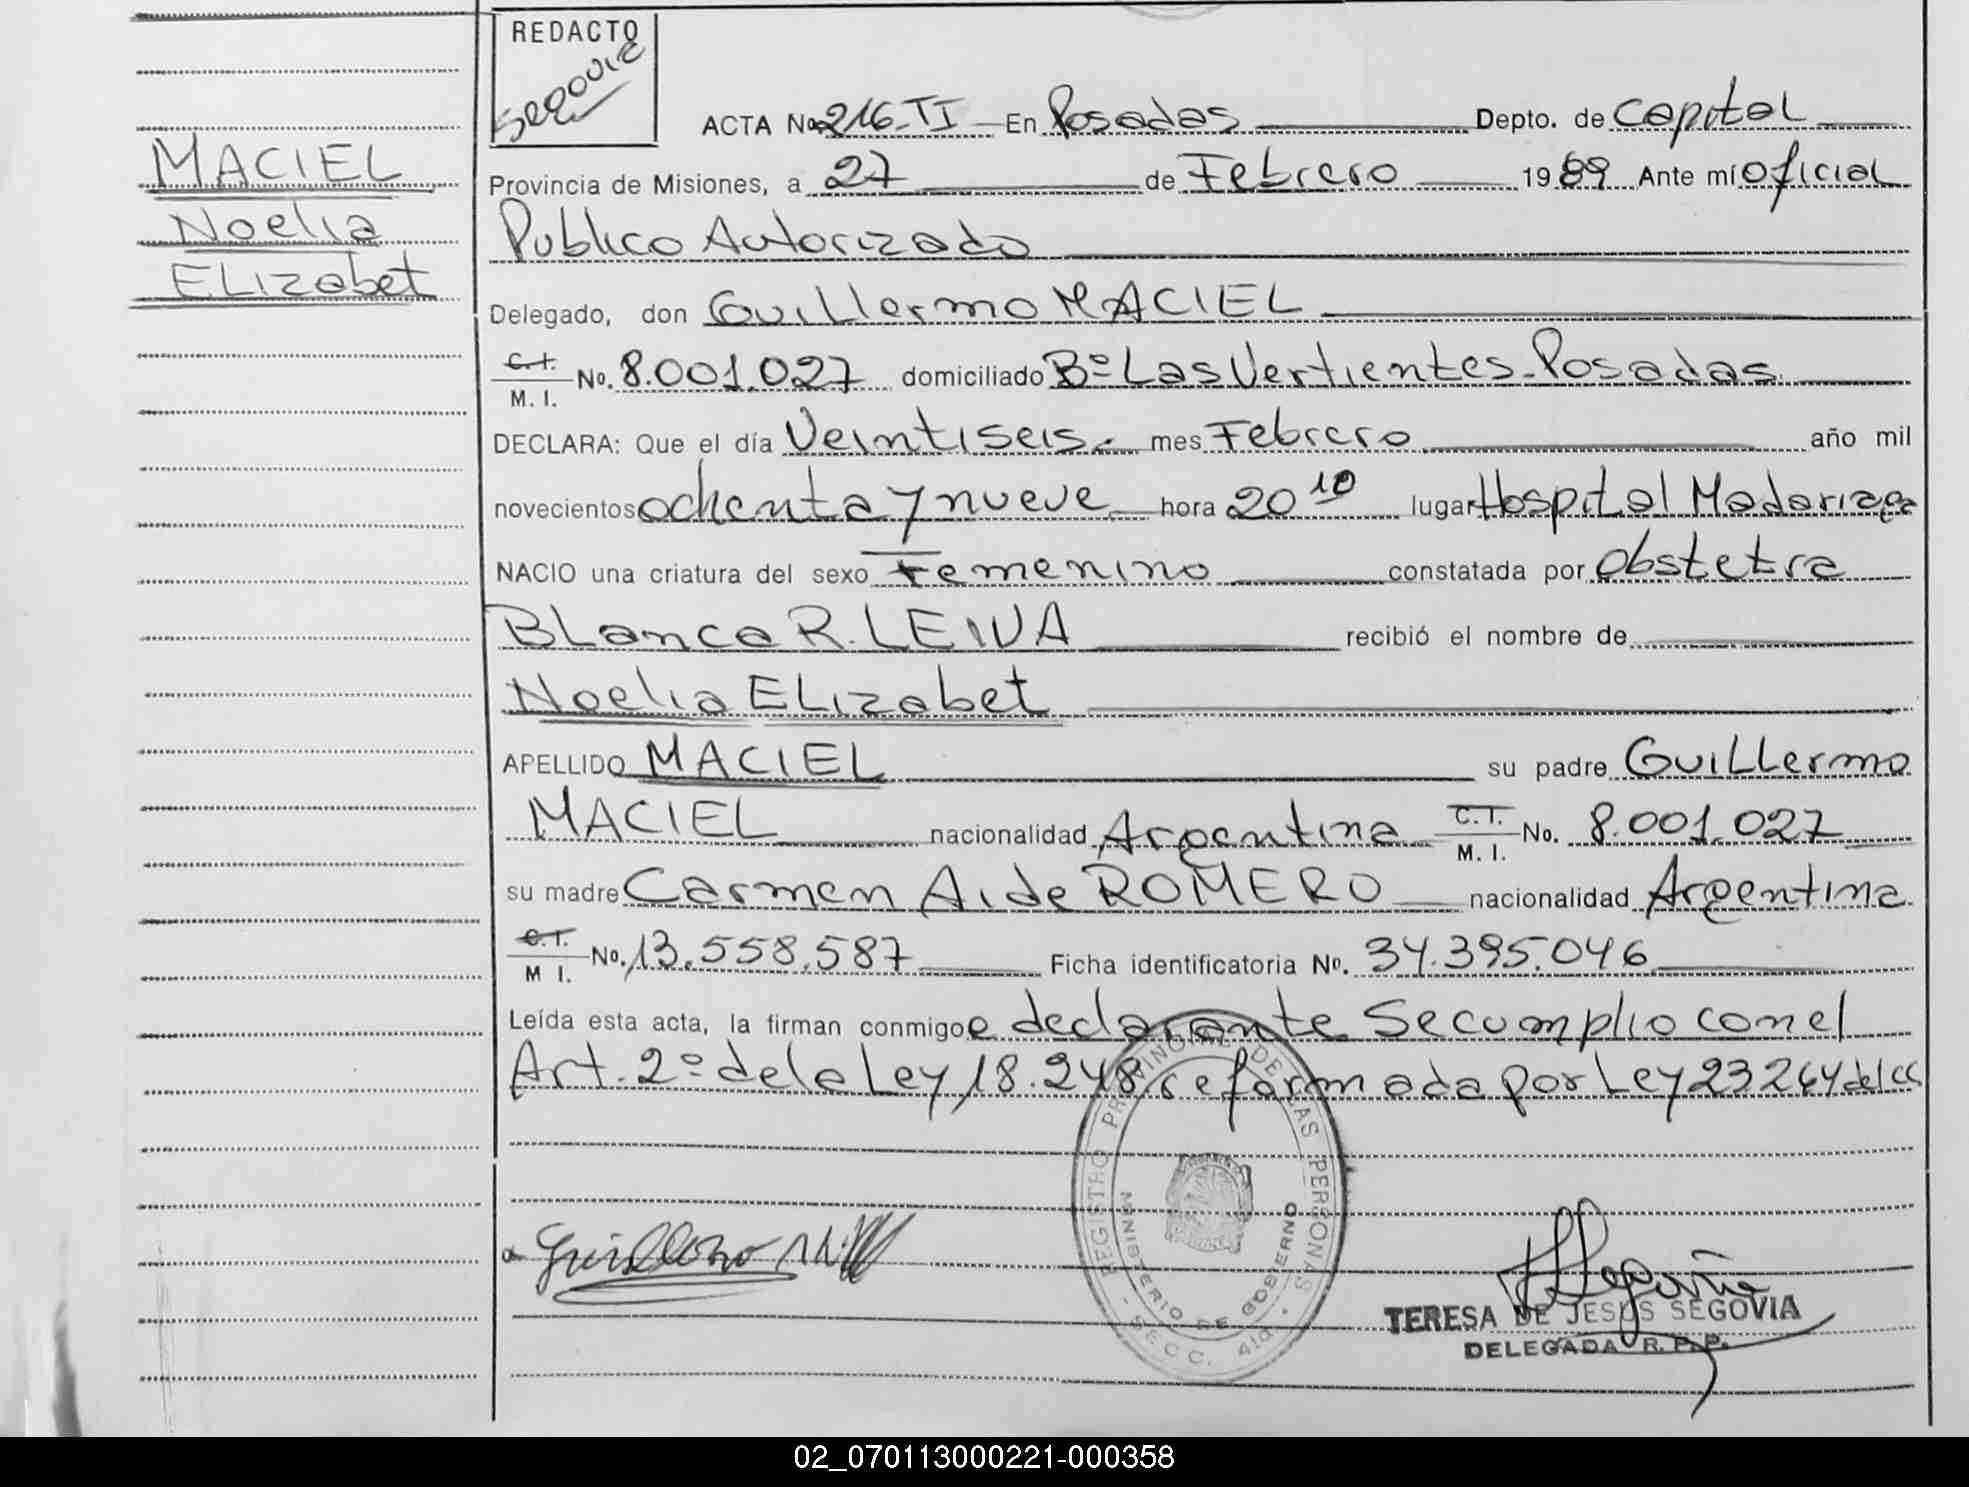 REDACTO
Segovia
ACTA No. 216-TI En Posadas Depto. de Capital
MACIEL
Noelia
ELizabet
Provincia de Misiones, a 27 de Febrero 1989 Ante mí Oficial
Publico Autorizado
Delegado, don Guillermo MACIEL
C.I. / M. I. No. 8.001.027 domiciliado Bº Las Vertientes-Posadas
DECLARA: Que el día Veintiseis mes Febrero año mil
novecientos ochenta y nueve hora 20 10 lugar Hospital Madariaga
NACIO una criatura del sexo Femenino constatada por Obstetra
BLanca R. LEIVA recibió el nombre de
Noelia ELizabet
APELLIDO MACIEL su padre GuiLLermo
MACIEL nacionalidad Argentina C.I. / M. I. No. 8.001.027
su madre Carmen Aide ROMERO nacionalidad Argentina
C.I. / M I. No. 13.558.587 Ficha identificatoria No. 34.395.046
Leída esta acta, la firman conmigo e declarante Se cumplio con el
Art. 2º de la Ley 18.248 reformada por Ley 23264 del CC
REGISTRO PROVINCIAL DE LAS PERSONAS
MINISTERIO DE GOBIERNO
SECC. 4ta.
Guillermo
Segovia
TERESA DE JESUS SEGOVIA
DELEGADA R. P. P.
02_070113000221-000358